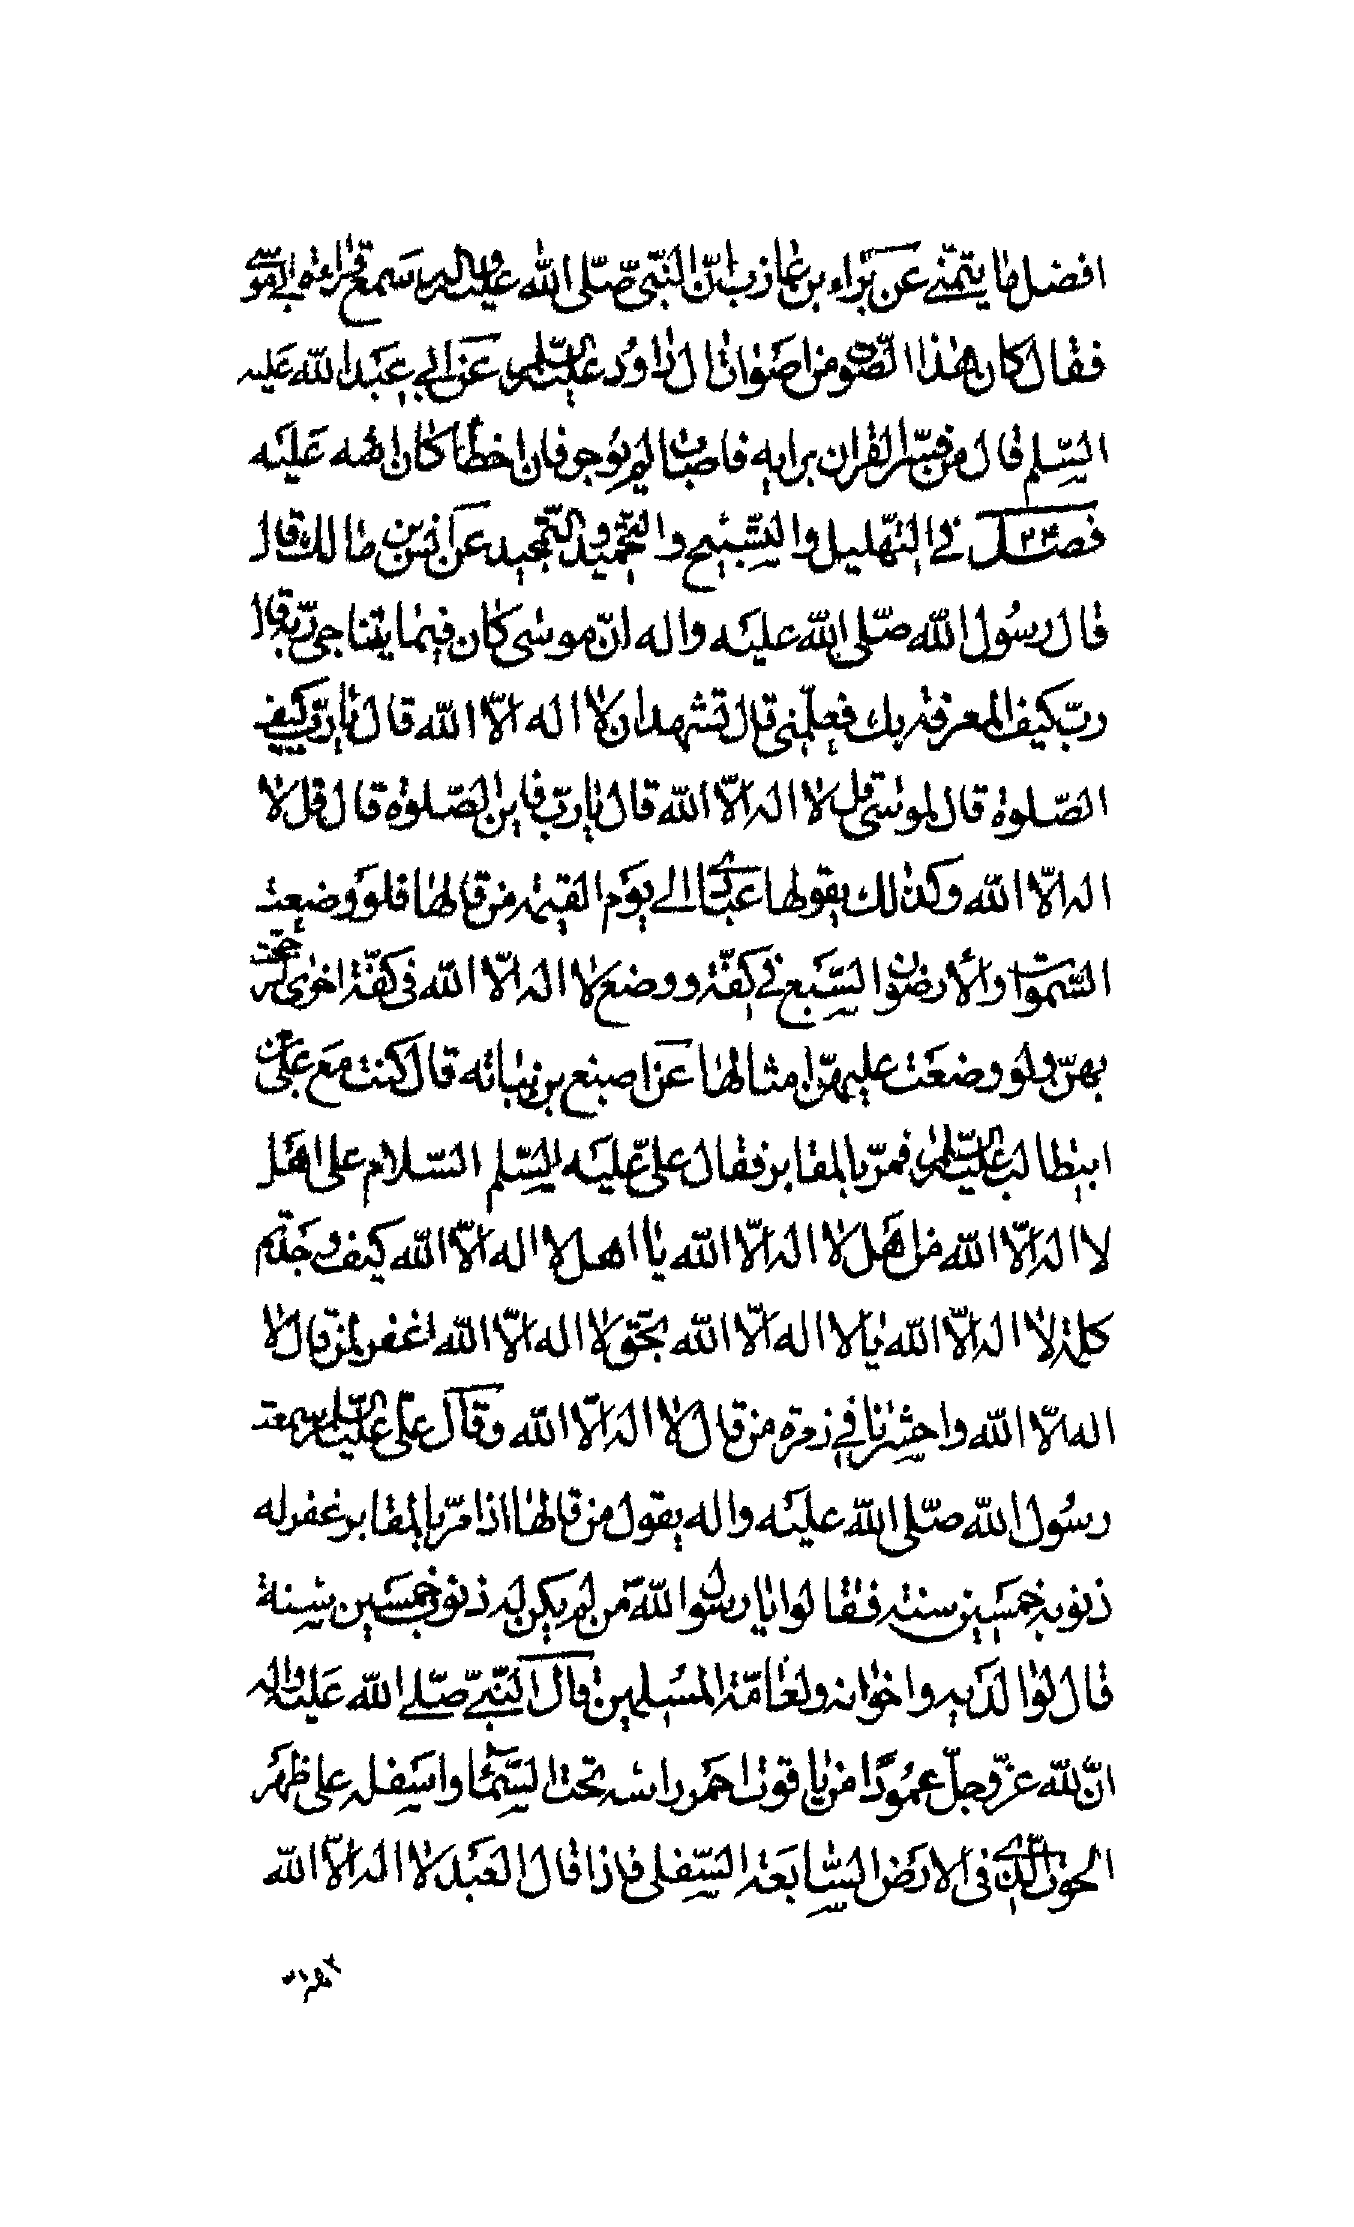 افضل ما يتمنّے عن برّاء بن عازب انّ النّبىّ صّلى الله عليه واله سمع قراءة ابى موسى
فقال كان هذا الصّوت من اصوات ال داود عليه السّلم عن ابي عبد الله عليه
السّلم قال من فسّر القران برايه فاصاب لم يوجر فان اخطأ كان اثمه عليه
فصل ٢٣ في التهليل والتسّبيح والتّحميد والتّمجيد عن انس بن مالك قال
قال رسول الله صّلى الله عليه واله انّ موسى كان فيما يناجى ربّه قال
ربّ كيف المعرفة بك فعلّمنى قال تشهد ان لا اله الّا الله قال يا ربّ كيف
الصّلوة قال لموسى قل لا اله الّا الله قال يا ربّ فاين الصّلوة قال قل لا
اله الّا الله وكذلك يقولها عبادى الى يوم القيمة من قالها فلو وضعت
السّموات والأرضون السّبع في كفّة ووضع لا اله الّا الله فى كفّة اخرى لرجحت
بهنّ ولو وضعت عليهنّ امثالها عن اصبغ بن نباته قال كنت مع علىّ بن
ابيطالب عليه السّلم فمرّ بالمقابر فقال علىّ عليه السّلم السّلام على اهل
لا اله الّا الله من اهل لا اله الّا الله يا اهل لا اله الّا الله كيف وجدتم
كلمة لا اله الّا الله يا لا اله الّا الله بحّق لا اله الّا الله اغفر لمن قال لا
اله الّا الله واحشرنا في زمرة من قال لا اله الّا الله وقال علّى عليه السّلم سمعت
رسول الله صّلى الله عليه واله يقول من قالها اذا مرّ بالمقابر غفر له
ذنوبه خمسين سنة فقالوا يا رسول الله من لم يكن له ذنوب خمسين سنة
قال لوالديه واخوانه ولعامّة المسلمين قال النّبىّ صّلے الله عليه واله
انّ لله عزّ وجلّ عمودًا من ياقوت احمر راسه تحت السّماء واسفله على ظهر
الحوت الّذى فى الارض السّابعة السّفلى فاذا قال العبد لا اله الّا الله